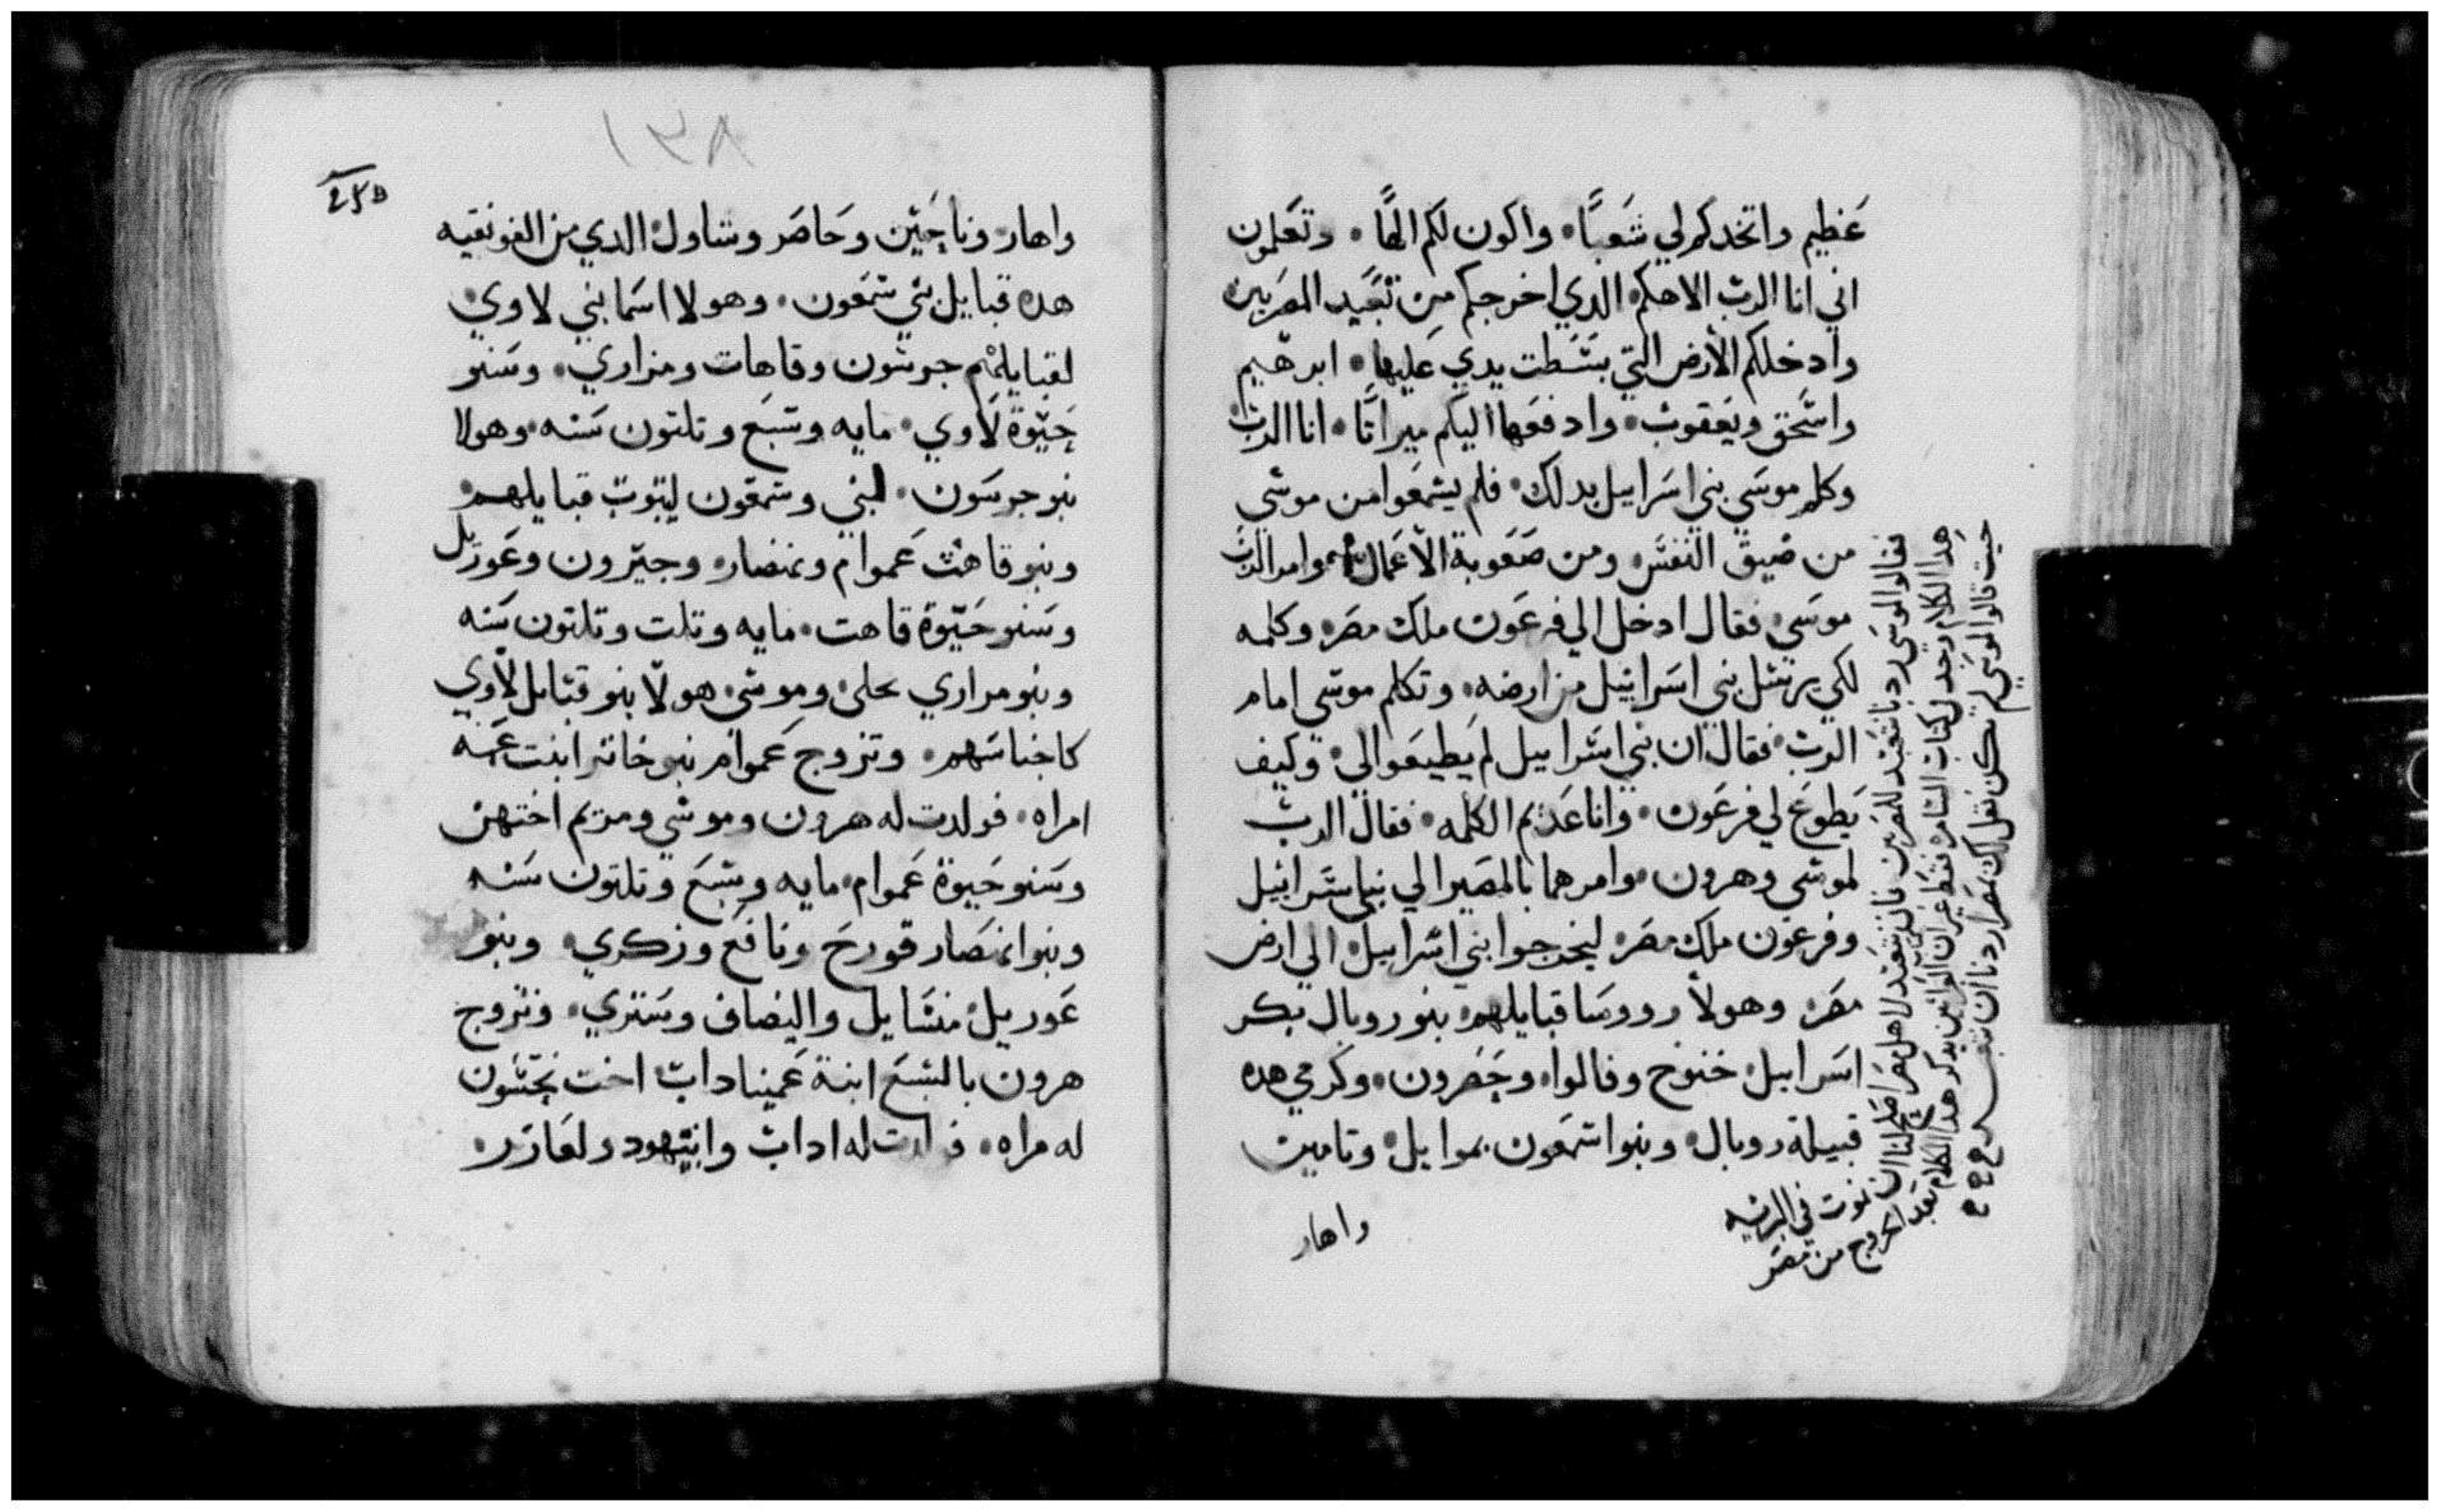 عَظيم واتخدكم لي شَعبًا. واكون لكم الهًا. وتعَلمون
اني انا الرب الاهكم الدي اخرجكم من تعَبيد المصَريين
وادخلكم الأرض التي بسَطت يدي عَليها. ابرهيم
واسَحق ويَعقوب. وادفعَها اليكم ميراتًا. انا الرب
وكلم موسَي بني اسَراييل بدلك. فلم يسَمعَوا من موسَي
من ضيق النفسَ ومن صَعَوبة الأعَمال وامر الرب
موسَي فقال ادخل الي فرعَون ملك مصَر وكلمه
لكي يرسَل بني اسَراييل من ارضه. وتكلم موسَي امام
الرب فقال ان بني اسَراييل لم يَطيعَوا لي وكيف
يَطوعَ لي فرعَون. وانا عَديم الكلمه. فقال الرب
لموسَي وهرون وامرهما بالمصَير الي بني اسَراييل
وفرعَون ملك مصَر ليخرجوا بني اسَراييل الي ارض
مصَر وهولأ رووسَا قبايلهم بنو روبال بكر
اسَراييل خنوخ وفالوا وحَصَرون. وكرمي هده
قبيلة روبال وبنوا شمعَون يموايل وتامين
واهار
فقالوا لموسَي ردنا نتعَبد للمصَريين فان نتعَبد لاهل مصَر اصَلح لنا ان نموت في البريه
هدا الكلام وجد في كتاب السَامره فقط غير ان التوراتين يدكر هدا الكلام بعَد الخروج من مصَر
حيت قالوا لموسَي لم تكن نقل لك بمصَر اردنا ان نتعبد
١٣٨
واهار وناحَين وحَاصَر وشاول الدي من الفونقيه
هده قبايل بني شمعَون. وهولا اسَما بني لاوي
لقبايلهم جرسون وقاهات ومراري. وسَنو
حَيوة لاوي. مايه وسَبعَ وتلتون سَنه. وهولا
بنو جرسَون. لبني وسمعون لبيوت قبايلهم
وبنو قاهت عَموام ويمنصار وجبرون وعَوزيل
وسَنو حَيوة قاهت. مايه وتلت وتلتون سَنه
وبنو مراري محلي وموشي هولا بنو قبايل لاوي
كاجناسَهم. وتزوج عَموام نيوخانر ابنت عَمه
امراه. فولدت له هرون وموسَي ومريم اختهن
وسَنو حَيوة عَموام مايه وسَبعَ وتلتون سَنه
وبنوا يمنصَار قورحَ ونافعَ وزكري. وبنو
عَوزييل منسَايل واليصافن وسَتري. وتزوج
هرون بالسَبعَ ابنة عَميناداب اخت نحَسون
له مراه. فولدت له اداب وابيهود ولعَازر.